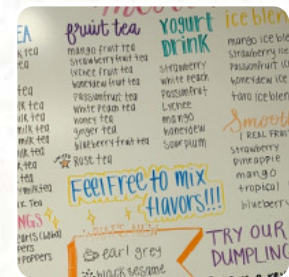 Menu
EA
k tea
ilk tea
milk tea
milk tea
k tea
tea
milk tea
k Tea
NGS
pers
poppers
fruit tea
mango fruit tea
strawberry fruit tea
lychee fruit tea
honeydew fruit tea
passionfruit tea
white peach tea
honey tea
ginger tea
blueberry fruit tea
Rose tea
Yogurt
Drink
strawberry
white peach
passionfruit
Lychee
mango
honeydew
sour plum
ice blen
mango ice ble
strawberry ice
passionfruit ic
honeydew ice
taro ice blen
Smooth
I REAL FRUI
strawberry
pineapple
mango
tropical
blueberr
Feel Free to mix
flavors!!!
earl grey
black sesame
TRY OUR
DUMPLING